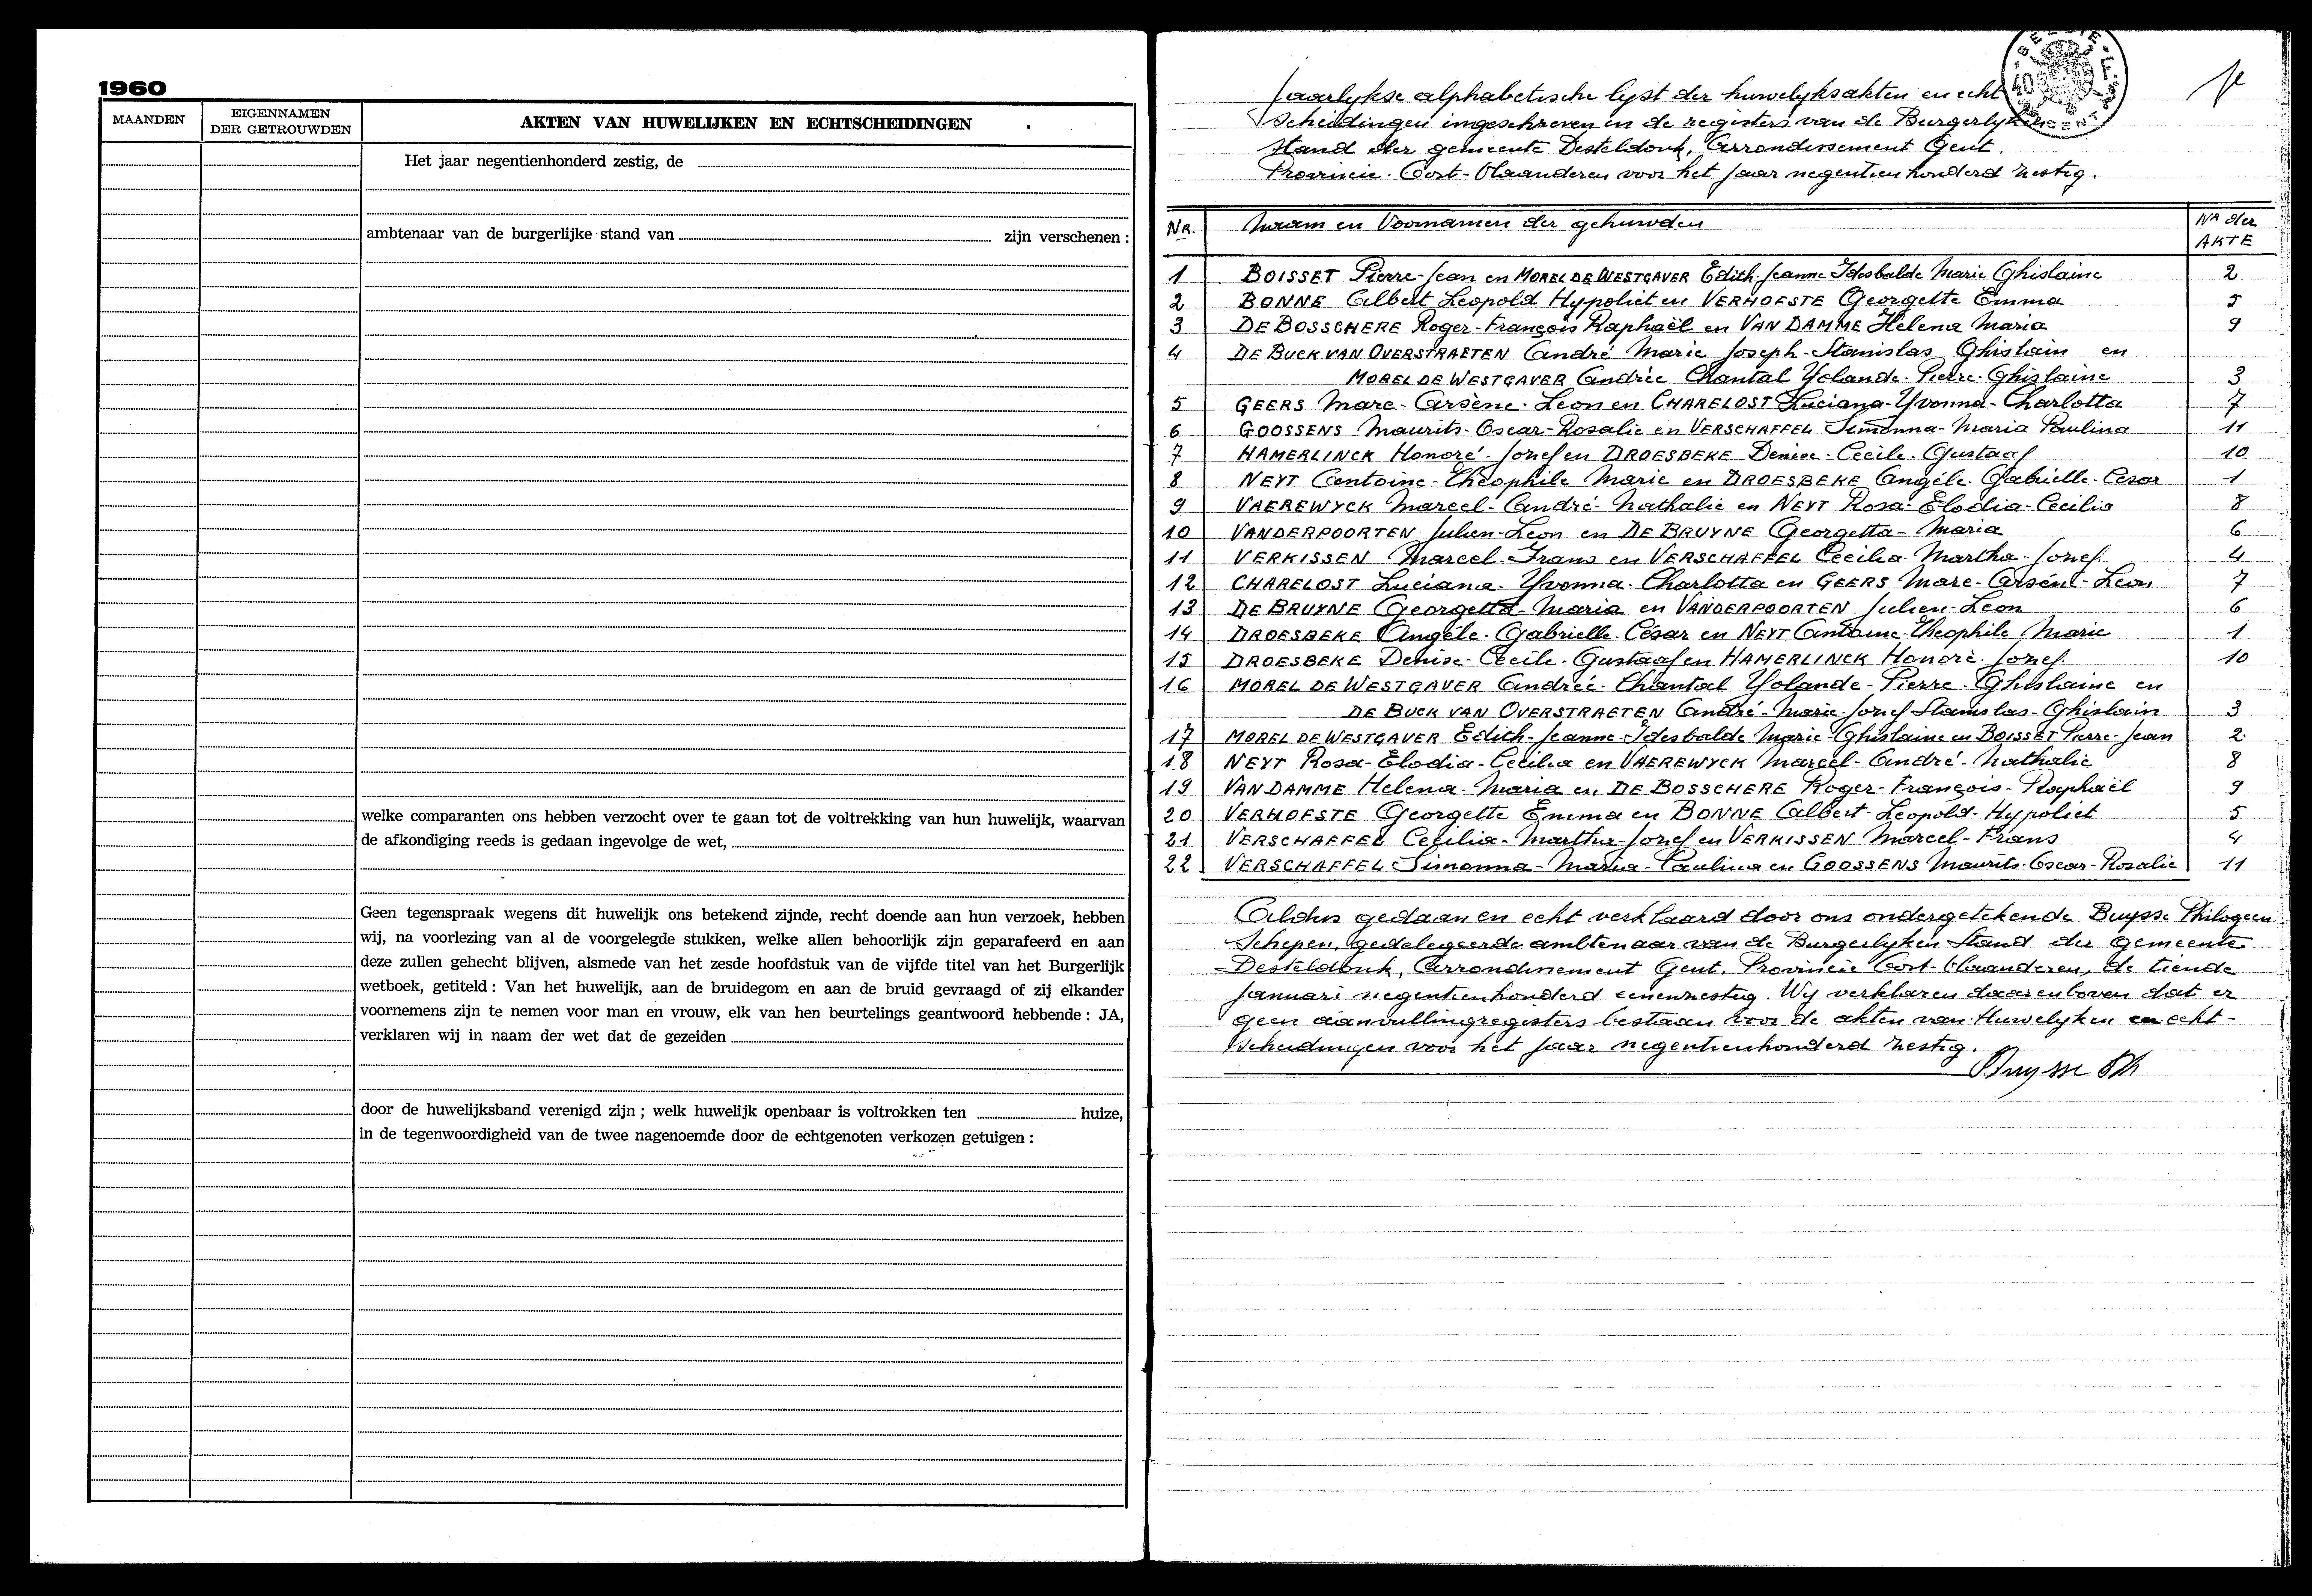 1960
MAANDEN
EIGENNAMEN
DER GETROUWDEN
AKTEN VAN HUWELIJKEN EN ECHTSCHEIDINGEN
Het jaar negentienhonderd zestig, de
ambtenaar van de burgerlijke stand van zijn verschenen :
welke comparanten ons hebben verzocht over te gaan tot de voltrekking van hun huwelijk, waarvan
de afkondiging reeds is gedaan ingevolge de wet,
Geen tegenspraak wegens dit huwelijk ons betekend zijnde, recht doende aan hun verzoek, hebben
wij, na voorlezing van al de voorgelegde stukken, welke allen behoorlijk zijn geparafeerd en aan
deze zullen gehecht blijven, alsmede van het zesde hoofdstuk van de vijfde titel van het Burgerlijk
wetboek, getiteld : Van het huwelijk, aan de bruidegom en aan de bruid gevraagd of zij elkander
voornemens zijn te nemen voor man en vrouw, elk van hen beurtelings geantwoord hebbende : JA,
verklaren wij in naam der wet dat de gezeiden
door de huwelijksband verenigd zijn ; welk huwelijk openbaar is voltrokken ten huize,
in de tegenwoordigheid van de twee nagenoemde door de echtgenoten verkozen getuigen :
Jaarlykse alphabetische lyst der huwelyksakten en echt
scheidingen ingeschreven in de registers van de Burgerlyken
stand der gemeente Desteldonk, Arrondissement Gent.
Provincie Oost-Vlaanderen voor het jaar negentienhonderd zestig.
Nr. Naam en Voornamen der gehuwden Nr der AKTE
1 BOISSET Pierre-Jean en MOREL DE WESTGAVER Edith-Jeanne Idesbalde Marie Ghislaine 2
2 BONNE Albert Leopold Hypoliet en VERHOESTE Georgette Emma 5
3 DE BOSSCHERE Roger-François Raphaël en VAN DAMME Helena Maria 9
4 DE BUCK VAN OVERSTRAETEN André Marie Joseph-Stanislas Ghislain en
MOREL DE WESTGAVER Andrée Chantal Yolande-Pierre-Ghislaine 3
5 GEERS Marc-Arsène-Leon en CHARELOST Luciana-Yvonna-Charlotta 7
6 GOOSSENS Maurits-Oscar-Rosalie en VERSCHAFFEL Simonna-Maria Paulina 11
7 HAMERLINCK Honoré-Jozef en DROESBEKE Denise-Cecile-Gustaaf 10
8 NEYT Antoine-Théophile Marie en DROESBEKE Angèle-Gabrielle-César 1
9 VAEREWYCK Marcel-André-Nathalie en NEYT Rosa-Elodia-Cecilia 8
10 VANDERPOORTEN Julien-Leon en DE BRUYNE Georgetta-Maria 6
11 VERKISSEN Marcel-Frans en VERSCHAFFEL Cecilia Martha-Jozef 4
12 CHARELOST Luciana-Yvonna-Charlotta en GEERS Marc-Arsène-Leon 7
13 DE BRUYNE Georgetta-Maria en VANDERPOORTEN Julien-Leon 6
14 DROESBEKE Angèle-Gabrielle-César en NEYT Antoine-Theophile Marie 1
15 DROESBEKE Denise-Cecile-Gustaaf en HAMERLINCK Honoré-Jozef 10
16 MOREL DE WESTGAVER Andrée-Chantal Yolande-Pierre-Ghislaine en
DE BUCK VAN OVERSTRAETEN André-Marie-Jozef Stanislas-Ghislain 3
17 MOREL DE WESTGAVER Edith-Jeanne-Idesbalde Marie-Ghislaine en BOISSET Pierre-Jean 2
18 NEYT Rosa-Elodia-Cecilia en VAEREWYCK Marcel-André-Nathalie 8
19 VAN DAMME Helena-Maria en DE BOSSCHERE Roger-François-Raphaël 9
20 VERHOESTE Georgette Emma en BONNE Albert-Leopold-Hypoliet 5
21 VERSCHAFFEL Cecilia-Martha-Jozef en VERKISSEN Marcel-Frans 4
22 VERSCHAFFEL Simonna-Maria-Paulina en GOOSSENS Maurits-Oscar-Rosalie 11
Aldus gedaan en echt verklaard door ons ondergetekende Buysse Philogeen
Schepen, gedelegeerde ambtenaar van de Burgerlyken Stand der gemeente
Desteldonk, Arrondissement Gent, Provincie Oost-Vlaanderen, de tiende
Januari negentienhonderd eenenzestig. Wy verklaren daarenboven dat er
geen aanvullingregisters bestaan voor de akten van Huwelyken en echt-
scheidingen voor het jaar negentienhonderd zestig.
Buysse Ph